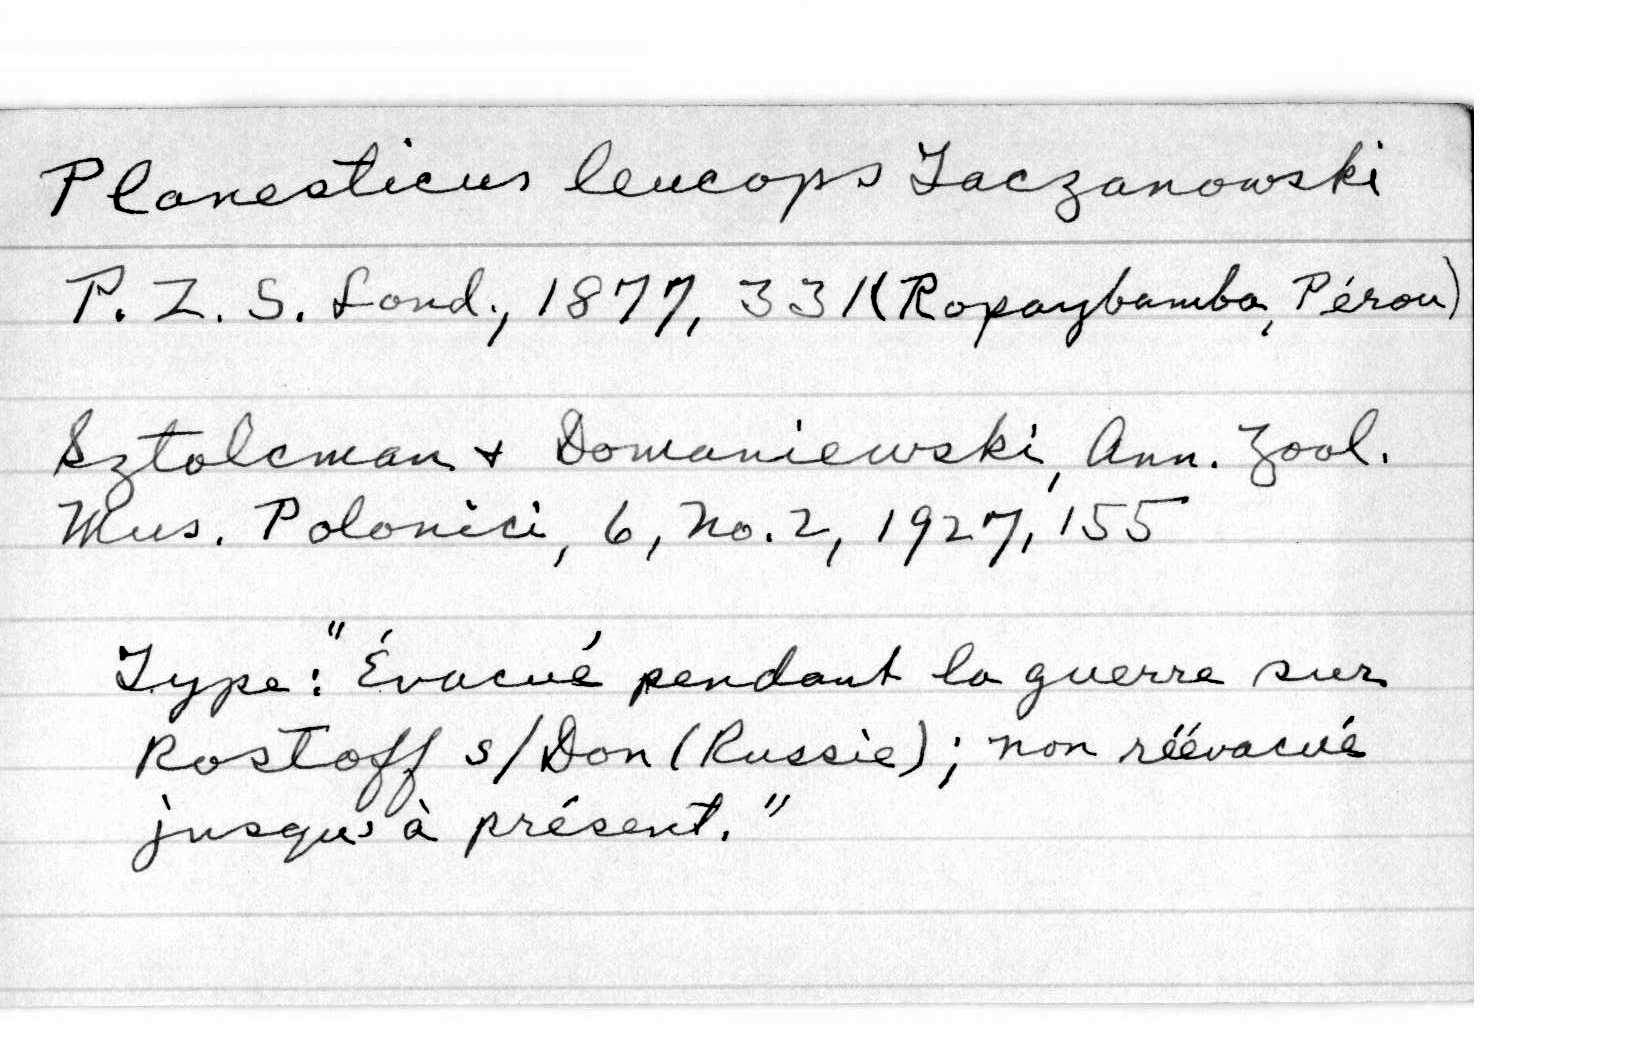 Planesticus leucops Taczanowski
P. Z. S. Lond., 1877, 331 (Ropaybamba, Pérou)
Sztolcman & Domaniewski, Ann. Zool.
Mus. Polonici, 6, No. 2, 1927, 155
Type: "Évacué pendant la guerre sur
Rostoff s/Don (Russie); non réëvacué
jusqu'à présent."